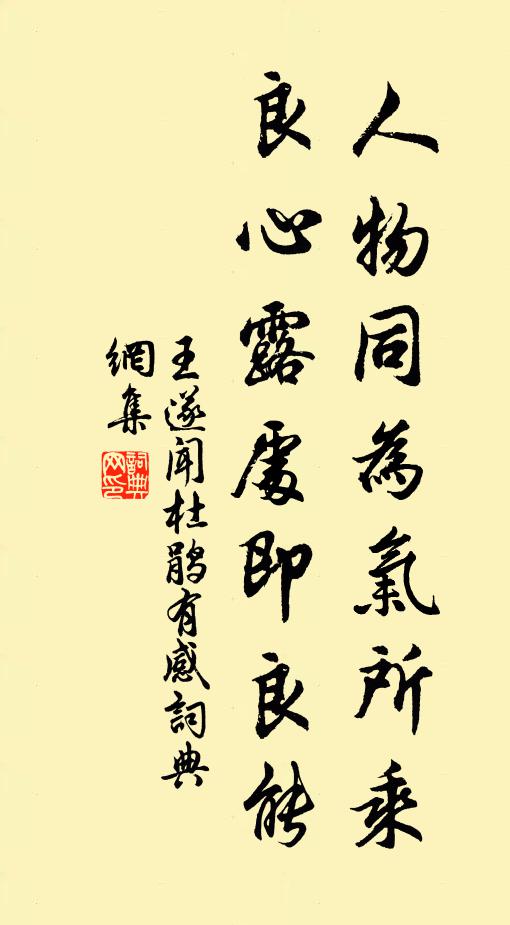 人物同為氣所乘
良心露處即良能
王遂闻杜鹃有感詞典
網集
詞典網印